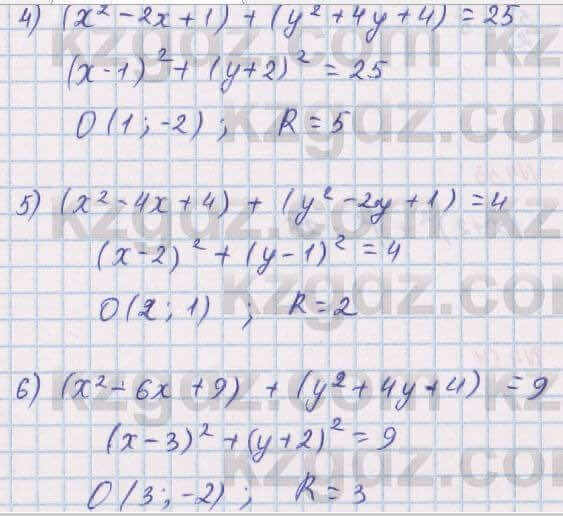 4) (x² - 2x + 1) + (y² + 4y + 4) = 25
(x - 1)² + (y + 2)² = 25
O(1; -2); R = 5
5) (x² - 4x + 4) + (y² - 2y + 1) = 4
(x - 2)² + (y - 1)² = 4
O(2; 1); R = 2
6) (x² - 6x + 9) + (y² + 4y + 4) = 9
(x - 3)² + (y + 2)² = 9
O(3; -2); R = 3